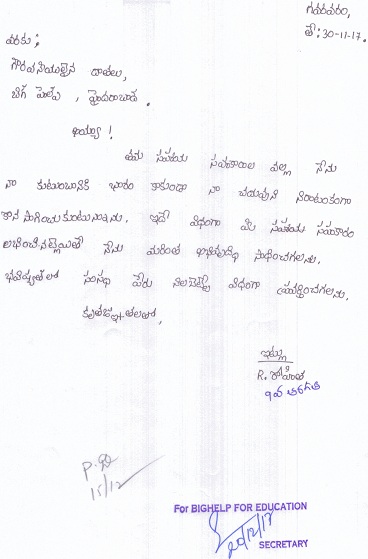 గవరవరం,
తే: 30-11-17.
వరకు;
గౌరవనీయులైన దాతలు,
బిగ్ హెల్ప్, హైదరాబాద్.
అయ్యా!
తమ సహాయ సహకారాల వల్ల నేను
నా కుటుంబానికి భారం కాకుండా నా చదువుని నిరాటంకంగా
కొన సాగించు కుంటున్నాను. ఇదే విధంగా మీ సహాయ సహకారం
లభించినట్లైయితే నేను మరింత అభివృద్ధి సాధించగలను.
భవిష్యత్ లో సంస్థ పేరు నిలబెట్టే విధంగా ప్రయత్నించగలను.
కృతజ్ఞతలతో,
ఇట్లు
R. రోహిత
9వ తరగతి
15/12
For BIGHELP FOR EDUCATION
20/12/17
SECRETARY